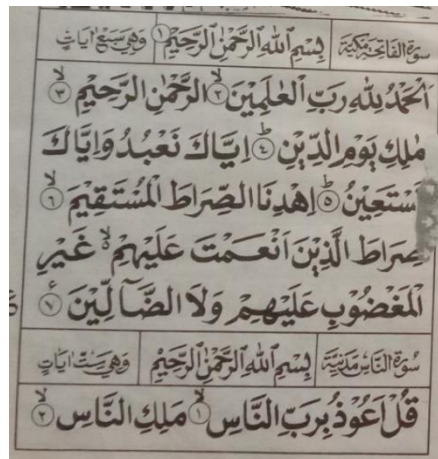 سُوْرَةُ الْفَاتِحَةِ مَكِّيَّةٌ بِسْمِ اللّٰهِ الرَّحْمٰنِ الرَّحِيْمِ ۝١ وَهِيَ سَبْعُ اٰيَاتٍ
اَلْحَمْدُ لِلّٰهِ رَبِّ الْعٰلَمِيْنَ ۝٢ۙ الرَّحْمٰنِ الرَّحِيْمِ ۝٣ۙ
مٰلِكِ يَوْمِ الدِّيْنِ ۝٤ؕ اِيَّاكَ نَعْبُدُ وَاِيَّاكَ
نَسْتَعِيْنُ ۝٥ؕ اِهْدِنَا الصِّرَاطَ الْمُسْتَقِيْمَ ۝٦ۙ
صِرَاطَ الَّذِيْنَ اَنْعَمْتَ عَلَيْهِمْ ۙ۬ غَيْرِ
الْمَغْضُوْبِ عَلَيْهِمْ وَلَا الضَّآلِّيْنَ ۝٧
سُوْرَةُ النَّاسِ مَدَنِيَّةٌ بِسْمِ اللّٰهِ الرَّحْمٰنِ الرَّحِيْمِ وَهِيَ سِتُّ اٰيَاتٍ
قُلْ اَعُوْذُ بِرَبِّ النَّاسِ ۝١ۙ مَلِكِ النَّاسِ ۝٢ۙ